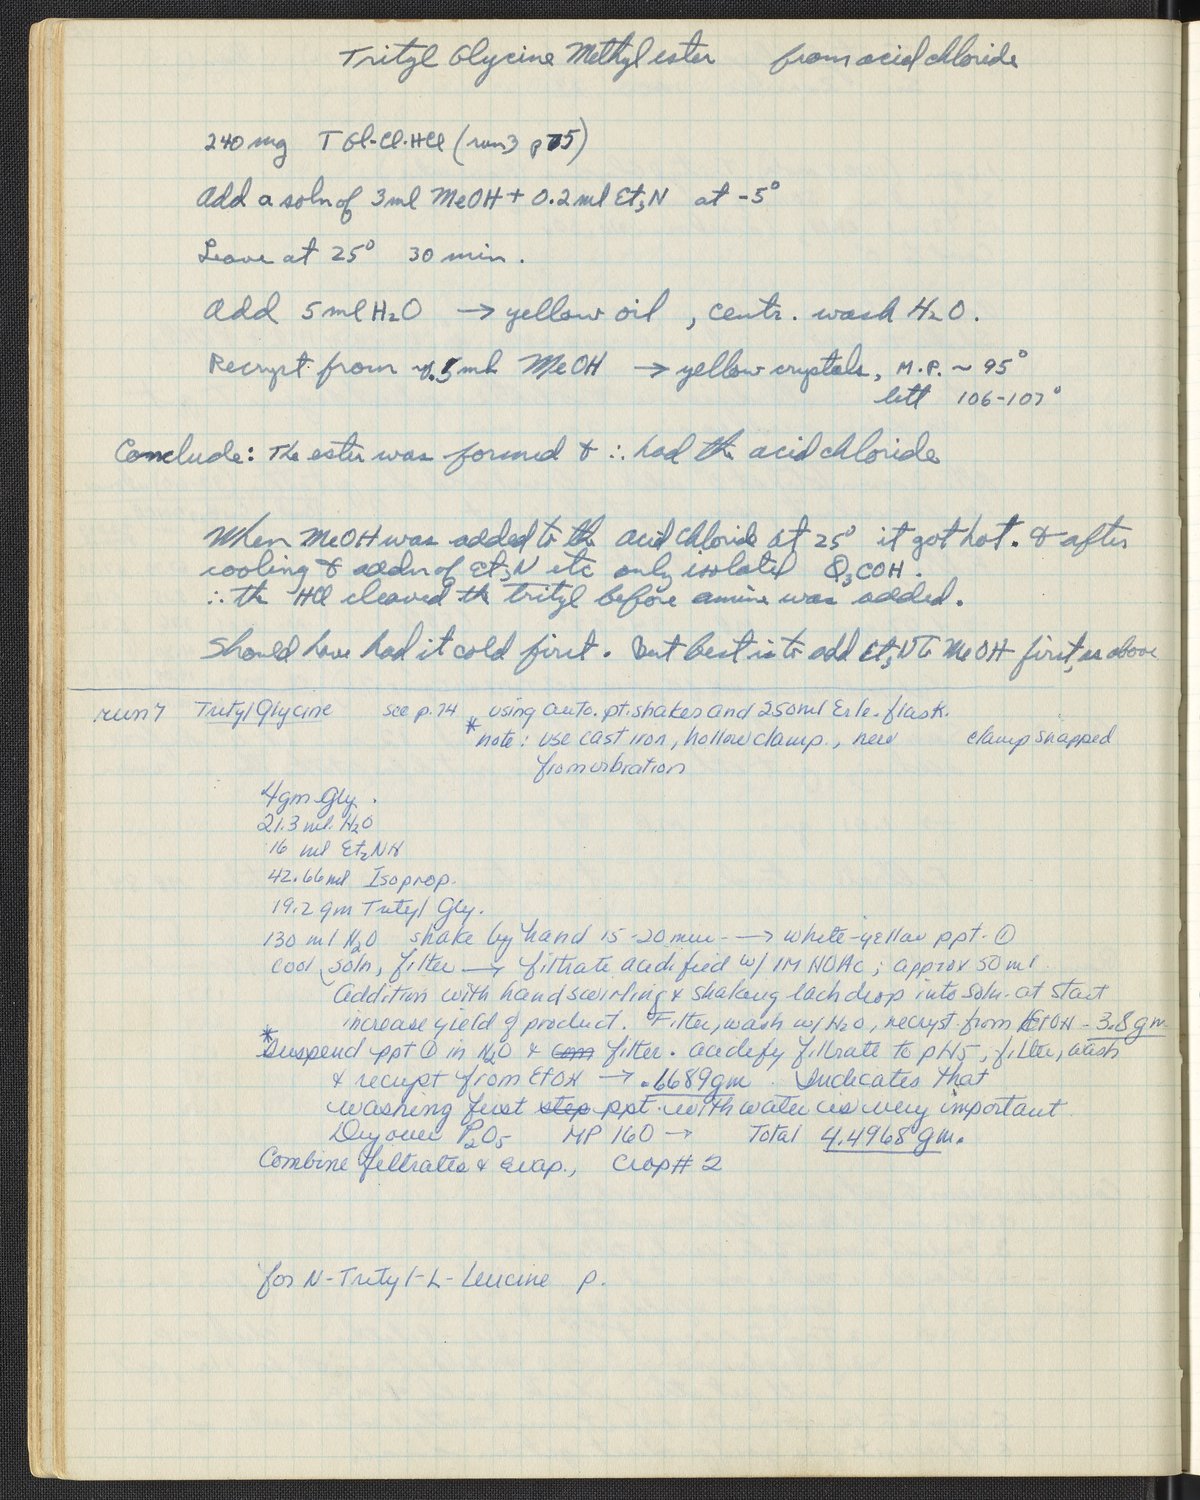 Trityl Glycine Methyl ester from acid chloride
240 mg T Gl-Cl·HCl (run3 p75)
Add a soln of 3 ml MeOH + 0.2 ml Et3N at -5°
Leave at 25° 30 min.
Add 5 ml H2O → yellow oil, centr. wash H2O.
Recryst from .5 ml MeOH → yellow crystals, M.P. ~ 95°
litt 106-107°
Conclude: The ester was formed & ∴ had the acid chloride
When MeOH was added to the acid chloride at 25° it got hot. & after
cooling & addn of Et3N etc only isolated Φ3COH.
∴ the HCl cleaved the trityl before amine was added.
Should have had it cold first. But best is to add Et3N to MeOH first, as above
run 7 Trityl Glycine see p. 74 using auto. pt. shaker and 250 ml Erle. flask.
*note: use cast iron, hollow clamp., new clamp snapped
from vibration
4 gm Gly.
21.3 ml. H2O
16 ml Et2NH
42.66 ml Isoprop.
19.2 gm Trityl Gly.
130 ml H2O shake by hand 15-20 min → white-yellow ppt. ①
cool soln, filter → filtrate acidified w/ 1M HOAc; approx 50 ml
Addition with hand swirling & shaking each drop into soln. at start
increase yield of product. Filter, wash w/ H2O, recryst from EtOH - 3.8 gm
*Suspend ppt ① in H2O & filter. acidify filtrate to pH 5, filter, wash
& recryst from EtOH → .6689 gm. Indicates that
washing first step ppt. with water is very important.
Dry over P2O5 MP 160 → Total 4.4968 gm.
Combine filtrates & evap., Crop # 2
for N-Trityl-L-Leucine p.